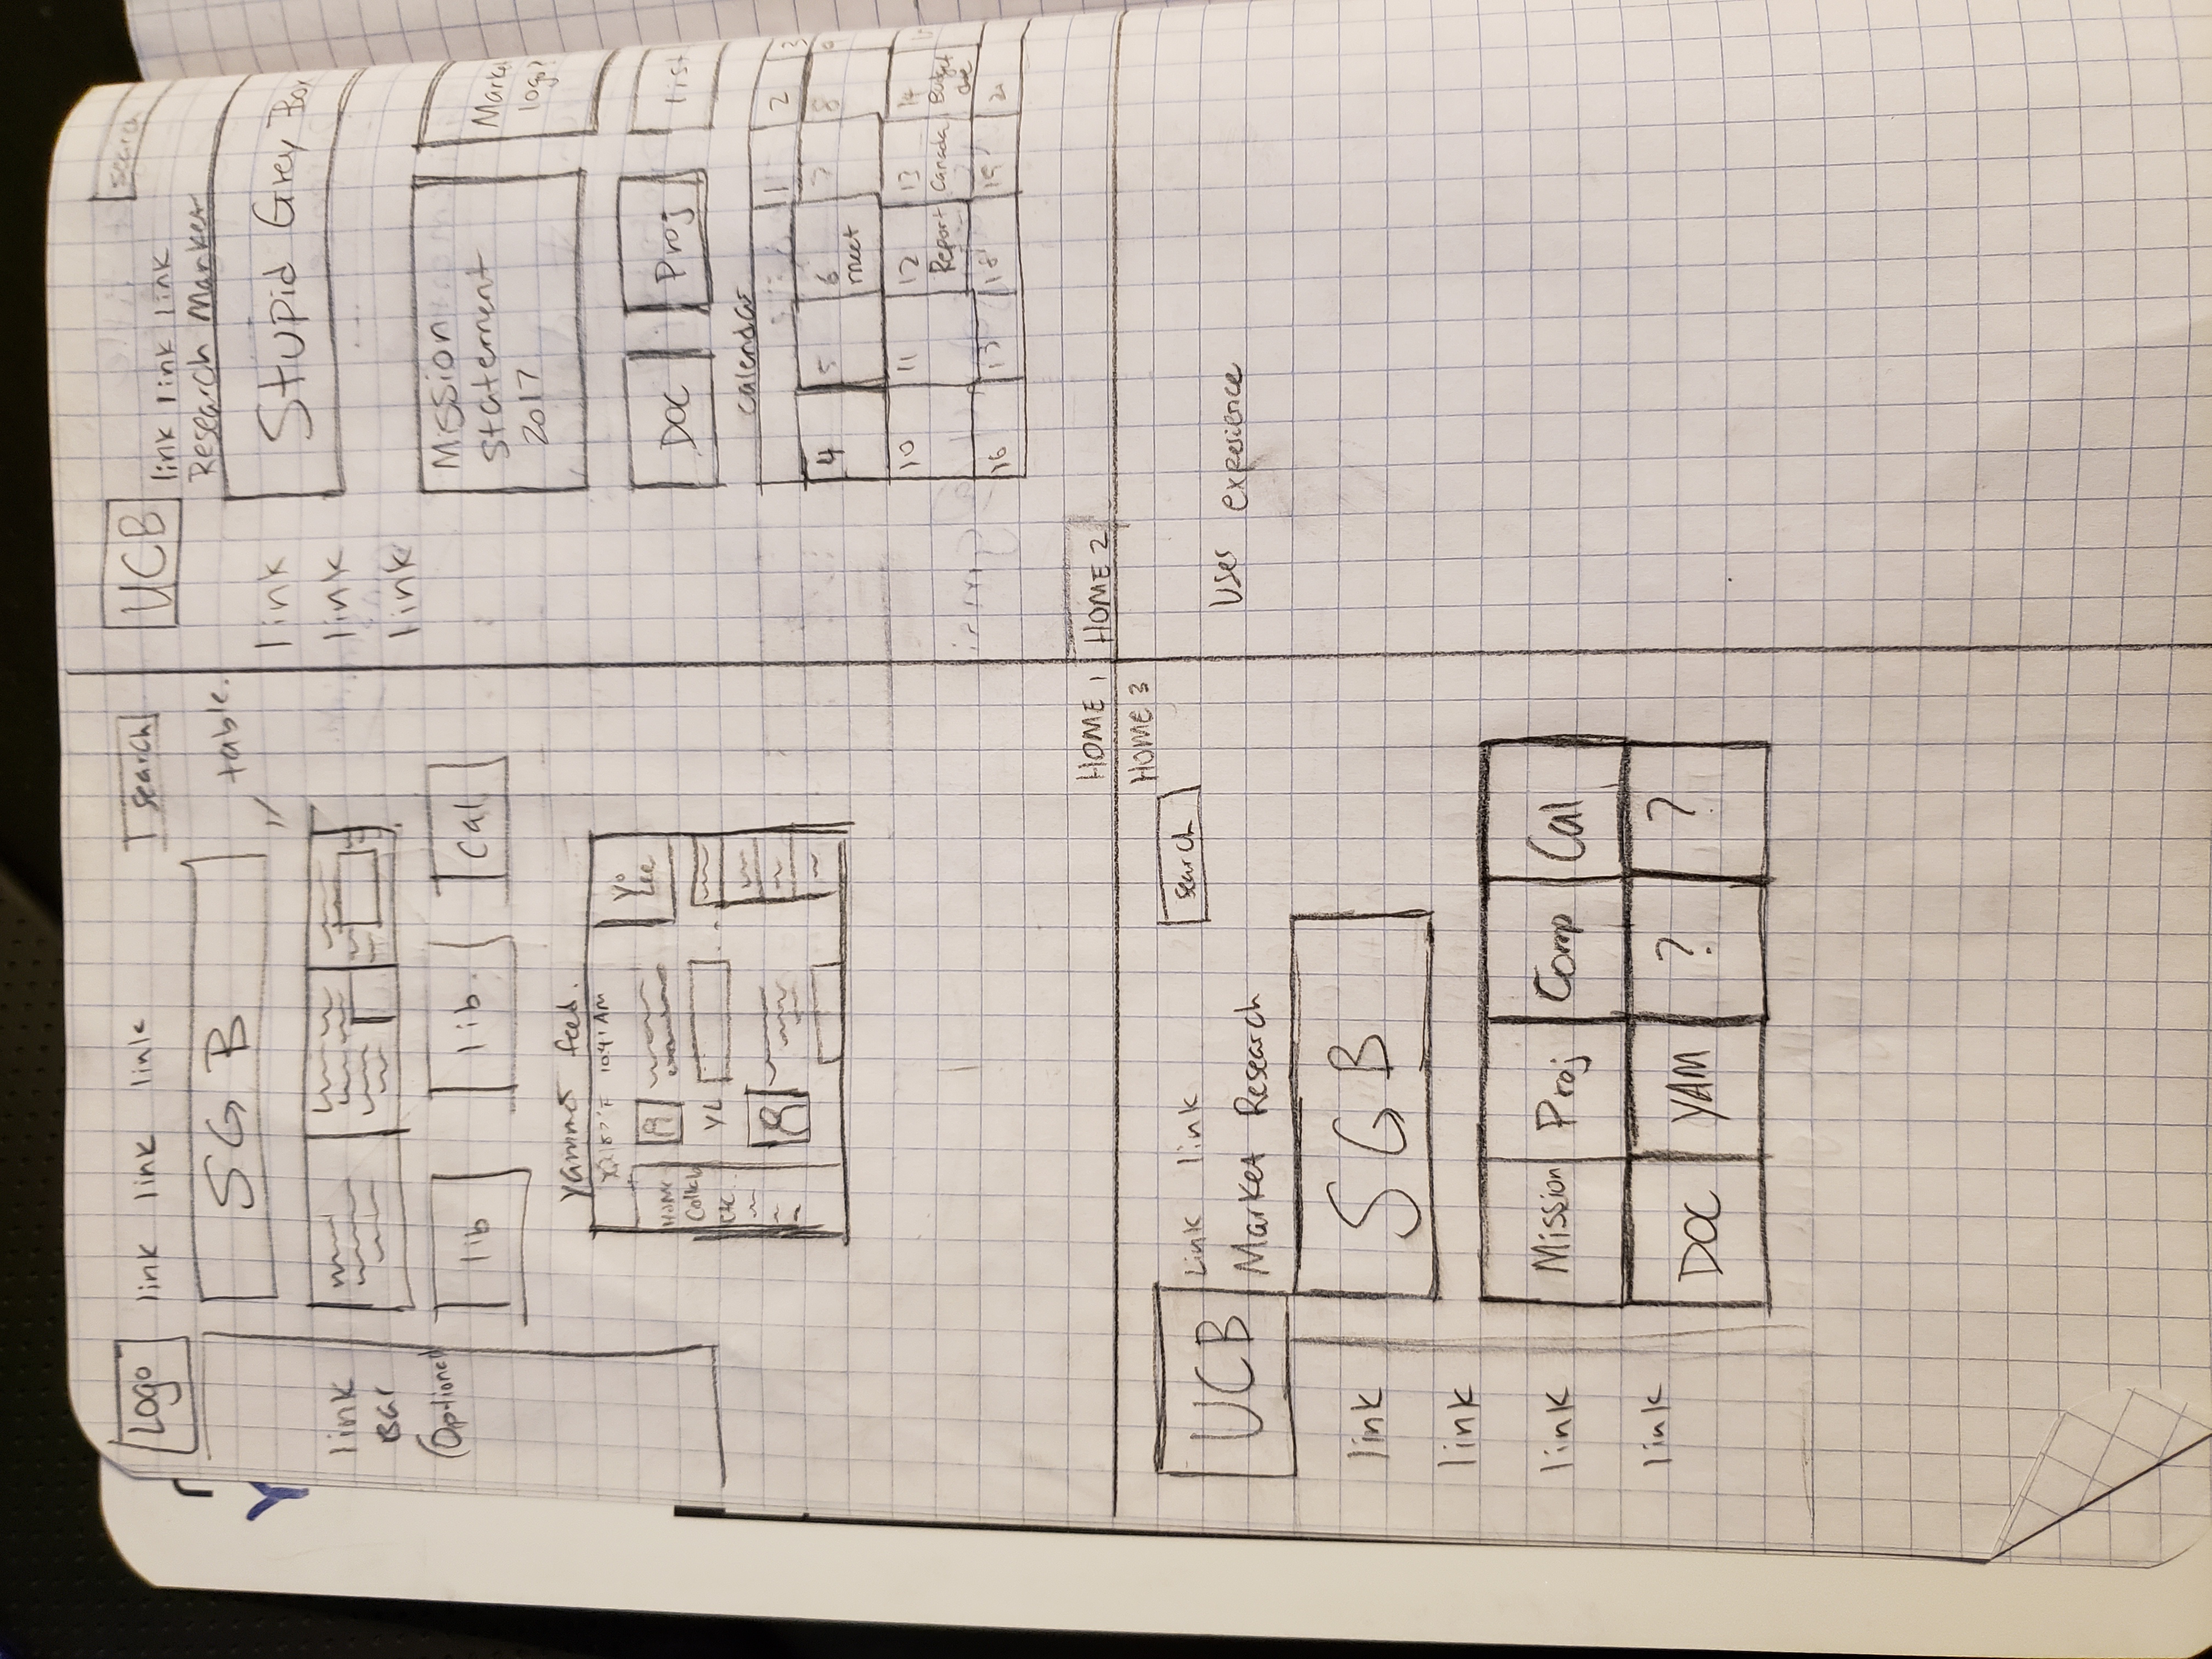 Logo link link link search
SGB
table.
link
Bar
(Optional)
lib lib. Cal
yammer feed.
10:41 AM
Yo
Lee
HOME
Collab
etc
YL
HOME 1
UCB
search
link link link
Research Market
Stupid Grey Box
link
link
link
Mission
statement
2017
Market
logo?
DOC Proj list
calendar
1 2 3
4 5 6 7 8 9
meet
10 11 12 13 14
Report Canada Budget
due
16 17 18 19 20
HOME 2
HOME 3
UCB
Link link search
Market Research
SGB
link
link
link
link
Mission Proj Comp Cal
DOC YAM ? ?
User experience